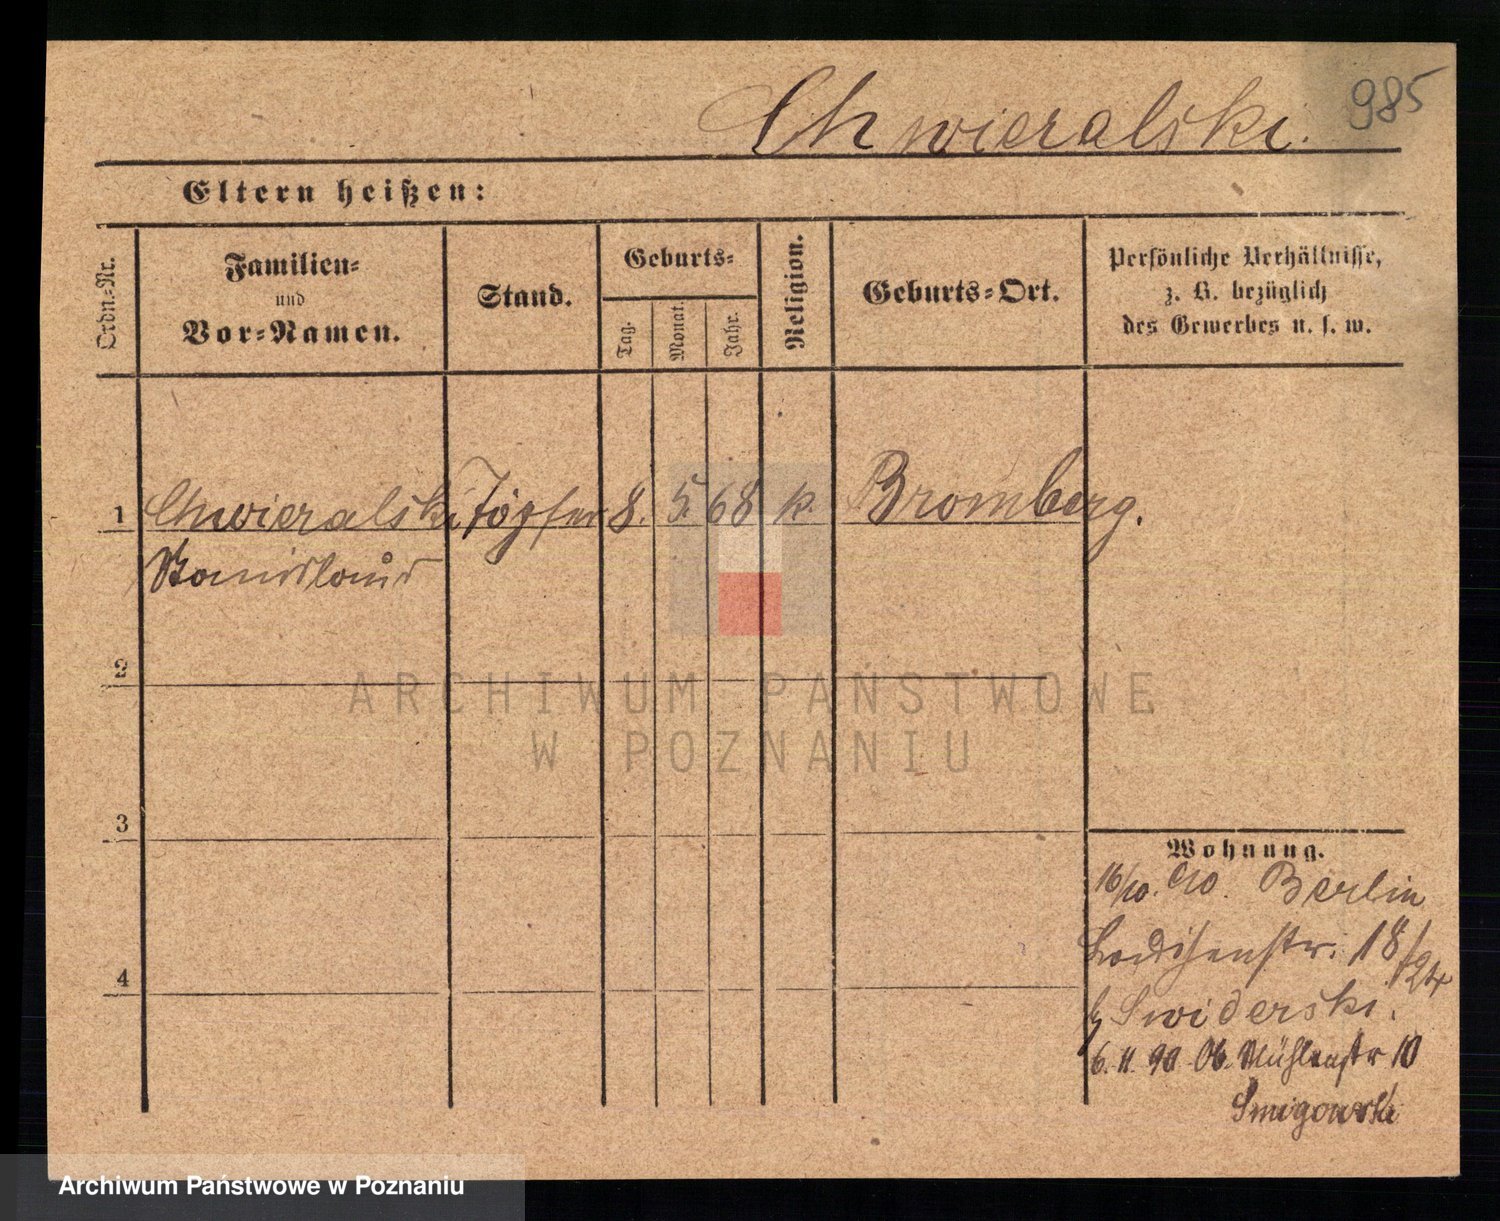 Chwieralski.
985
Eltern heißen:
Ordn.-Nr.
Familien-
und
Vor-Namen.
Stand.
Geburts-
Tag.
Monat.
Jahr.
Religion.
Geburts-Ort.
Persönliche Verhältnisse,
z. B. bezüglich
des Gewerbes u. s. w.
1
Chwieralski Töpfer 8. 5. 68 k. Bromberg.
Stanislaus
2
3
4
Wohnung.
16/10. 90. Berlin
18/24
Swiderski.
6. 11. 90. Ob. Mühlenstr 10
Smigowski
ARCHIWUM PAŃSTWOWE
W POZNANIU
Archiwum Państwowe w Poznaniu